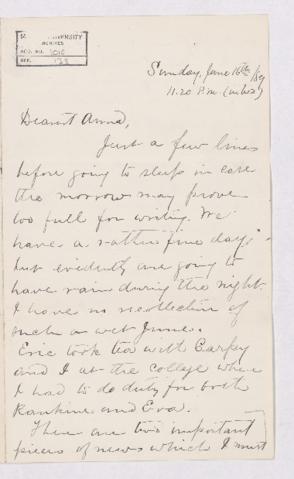 UNIVERSITY
ARCHIVES
ACC. NO.
REF.
Sunday, June 16th /89
11.20 P.M. (in bed)
Dearest Anna,
Just a few lines
before going to sleep in case
the morrow may prove
too full for writing. We
have a rather fine day
but evidently are going to
have rain during the night.
I have no recollection of
such a wet June.
Eric took tea with Carfey
and I at the College where
I had to do duty for both
Rankine and Eva.
There are two important
pieces of news which I must